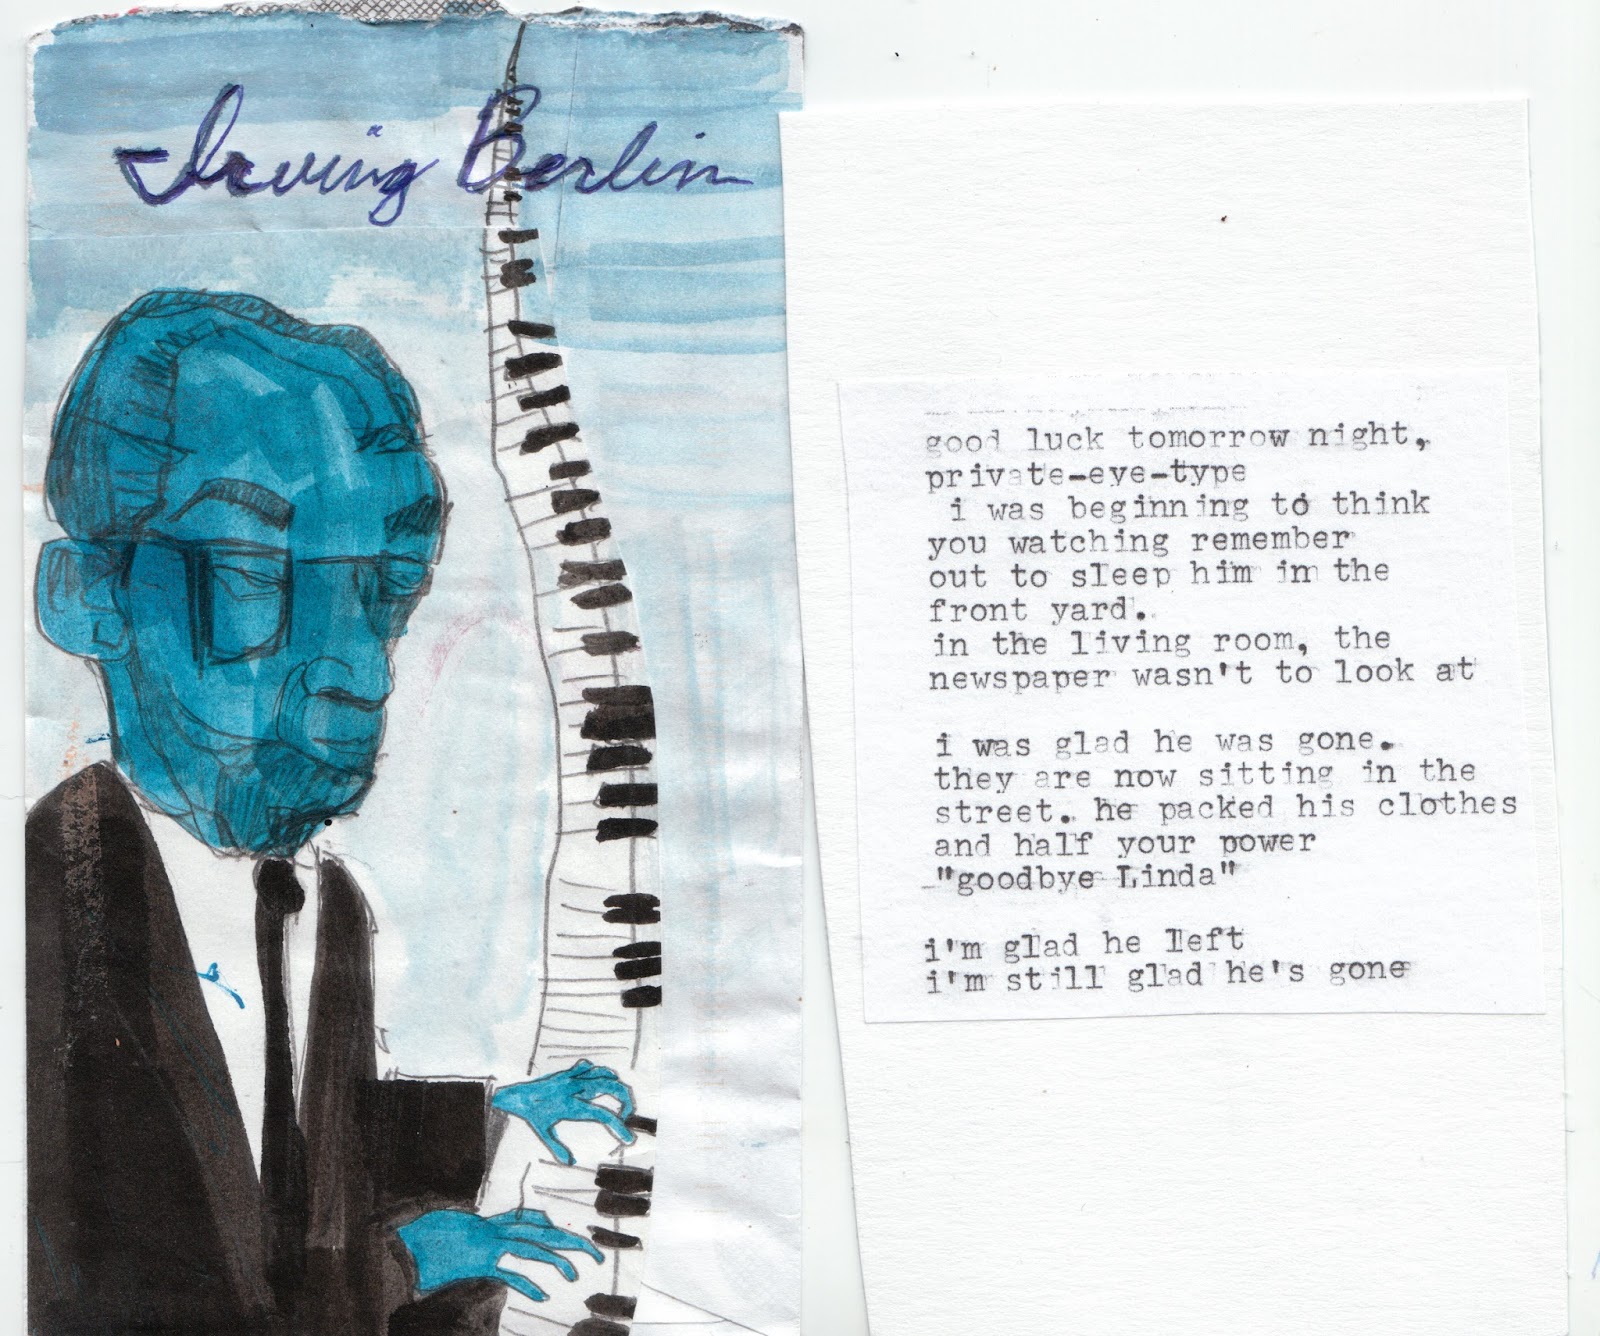 Irving Berlin
good luck tomorrow night,
private-eye-type
i was beginning to think
you watching remember
out to sleep him in the
front yard.
in the living room, the
newspaper wasn't to look at
i was glad he was gone.
they are now sitting in the
street. he packed his clothes
and half your power
"goodbye Linda"
i'm glad he left
i'm still glad he's gone